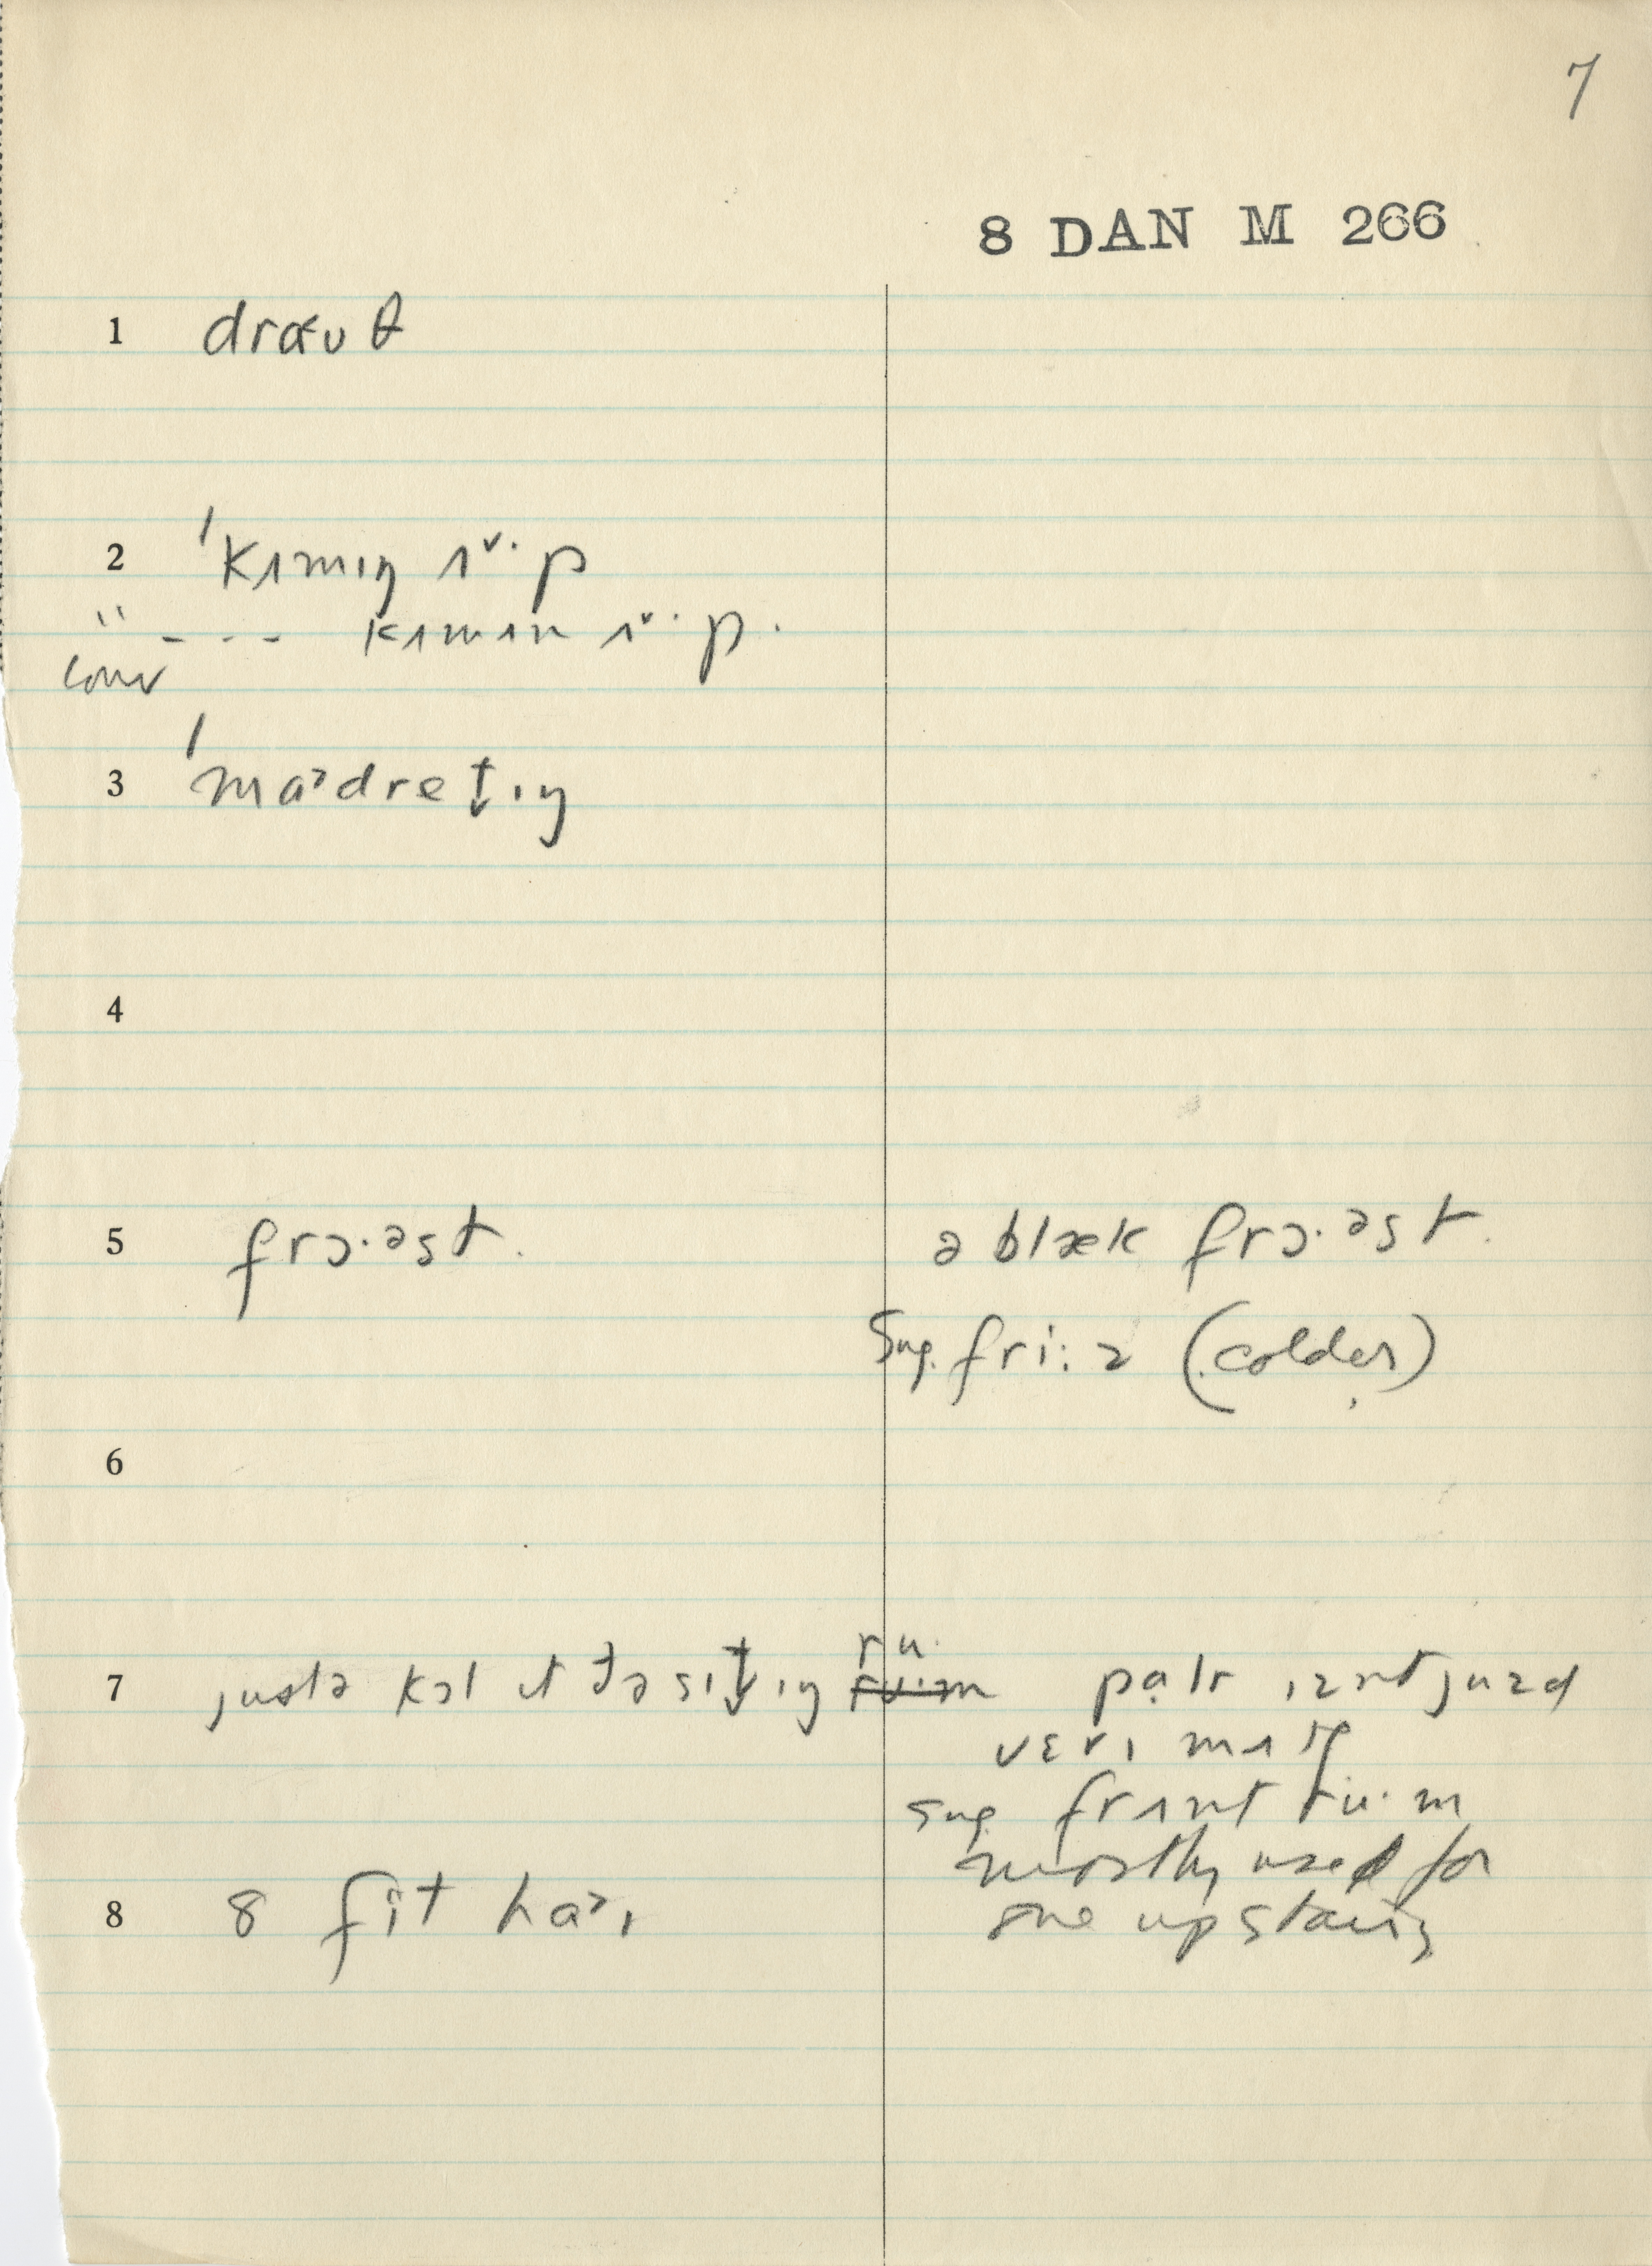 7
8 DAN M 266
1 draʊθ
2 ˈkʌmɪŋ ʌˇ·p
" - - - kʌmɪn ʌˇ·p.
conv
3 ˈmɑɚdret̬ɪŋ
4
5 frɔ·əst. ə blæk frɔ·əst.
Sug. fri:z (colder)
6
7 justə kɔl ɪt ðə sɪt̬ɪŋ ru· pɑlr ɪzntjuzd
vɛrɪ mʌtʃ
sug. frʌnt ru·m
mostly used for
one upstairs
8 8 fit haɪ